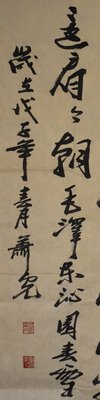 還看今朝毛澤東沁園春雪
歲在戊子年春月蕭